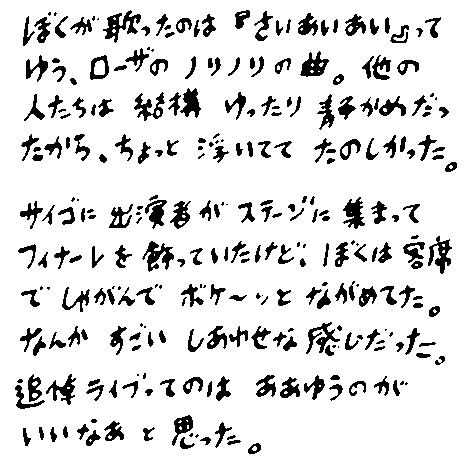 ぼくが歌ったのは『さいあいあい』って
ゆう、ローザのノリノリの曲。他の
人たちは結構ゆったり静かめだっ
たから、ちょっと浮いてて たのしかった。
サイゴに出演者がステージに集まって
フィナーレを飾っていたけど、ぼくは客席
でしゃがんでボケ〜ッとながめてた。
なんかすごいしあわせな感じだった。
追悼ライブってのはああゆうのが
いいなあと思った。